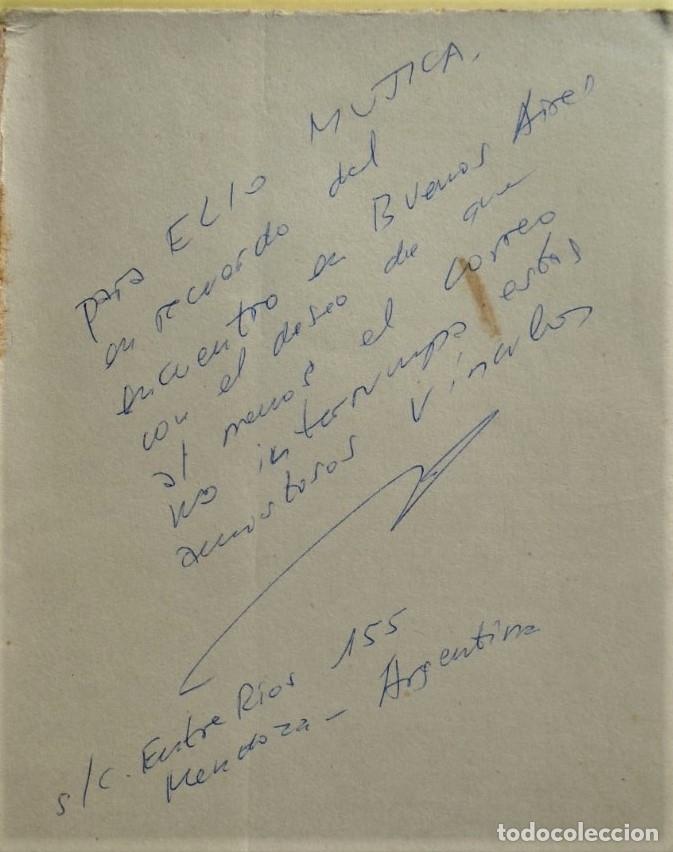 para ELIO MUJICA,
en recuerdo del
encuentro en Buenos Aires
con el deseo de que
al menos el correo
no interrumpa estos
amistosos vínculos
s/c. Entre Ríos 155
Mendoza - Argentina
todocoleccion